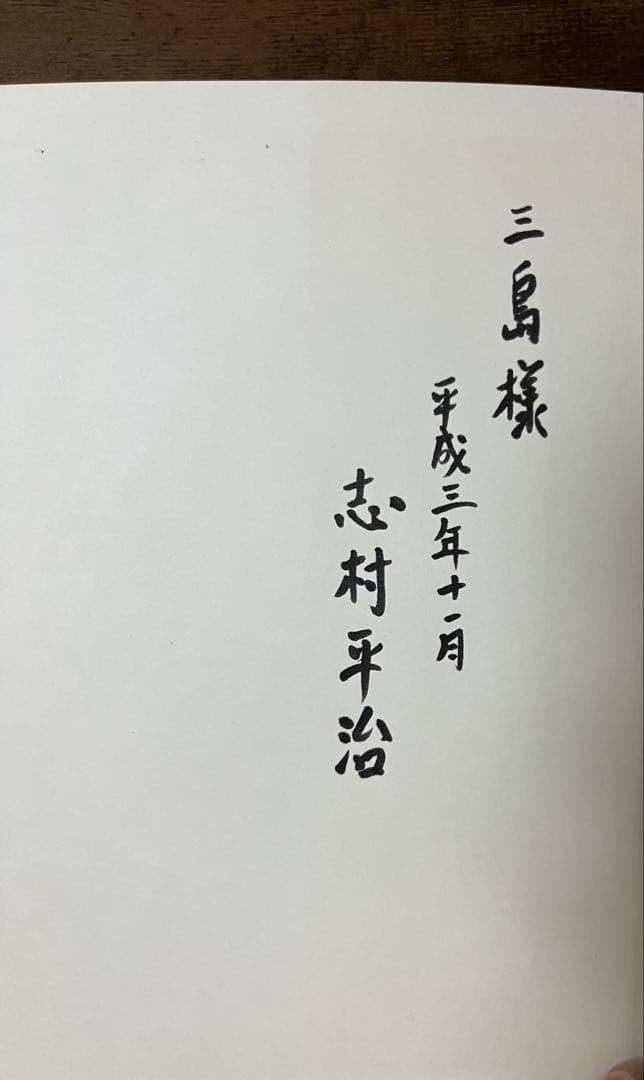 三島様
平成三年十一月
志村平治